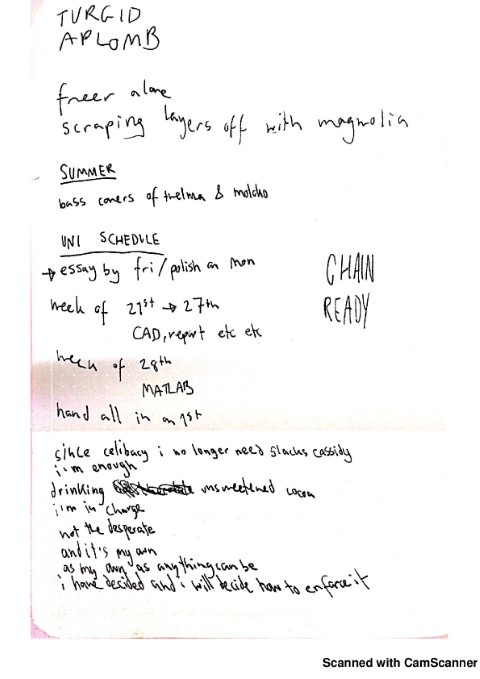 TURGID
APLOMB
freer alone
scraping layers off with magnolia
SUMMER
bass covers of thelma & molcho
UNI SCHEDULE
→ essay by fri/polish on mon
week of 21st → 27th
CAD, report etc etc
week of 28th
MATLAB
hand all in on 1st
CHAIN
READY
since celibacy i no longer need slacks cassidy
i'm enough
drinking unsweetened cocoa
i'm in charge
not the desperate
and it's my own
as my own as anything can be
i have decided and i will decide how to enforce it
Scanned with CamScanner